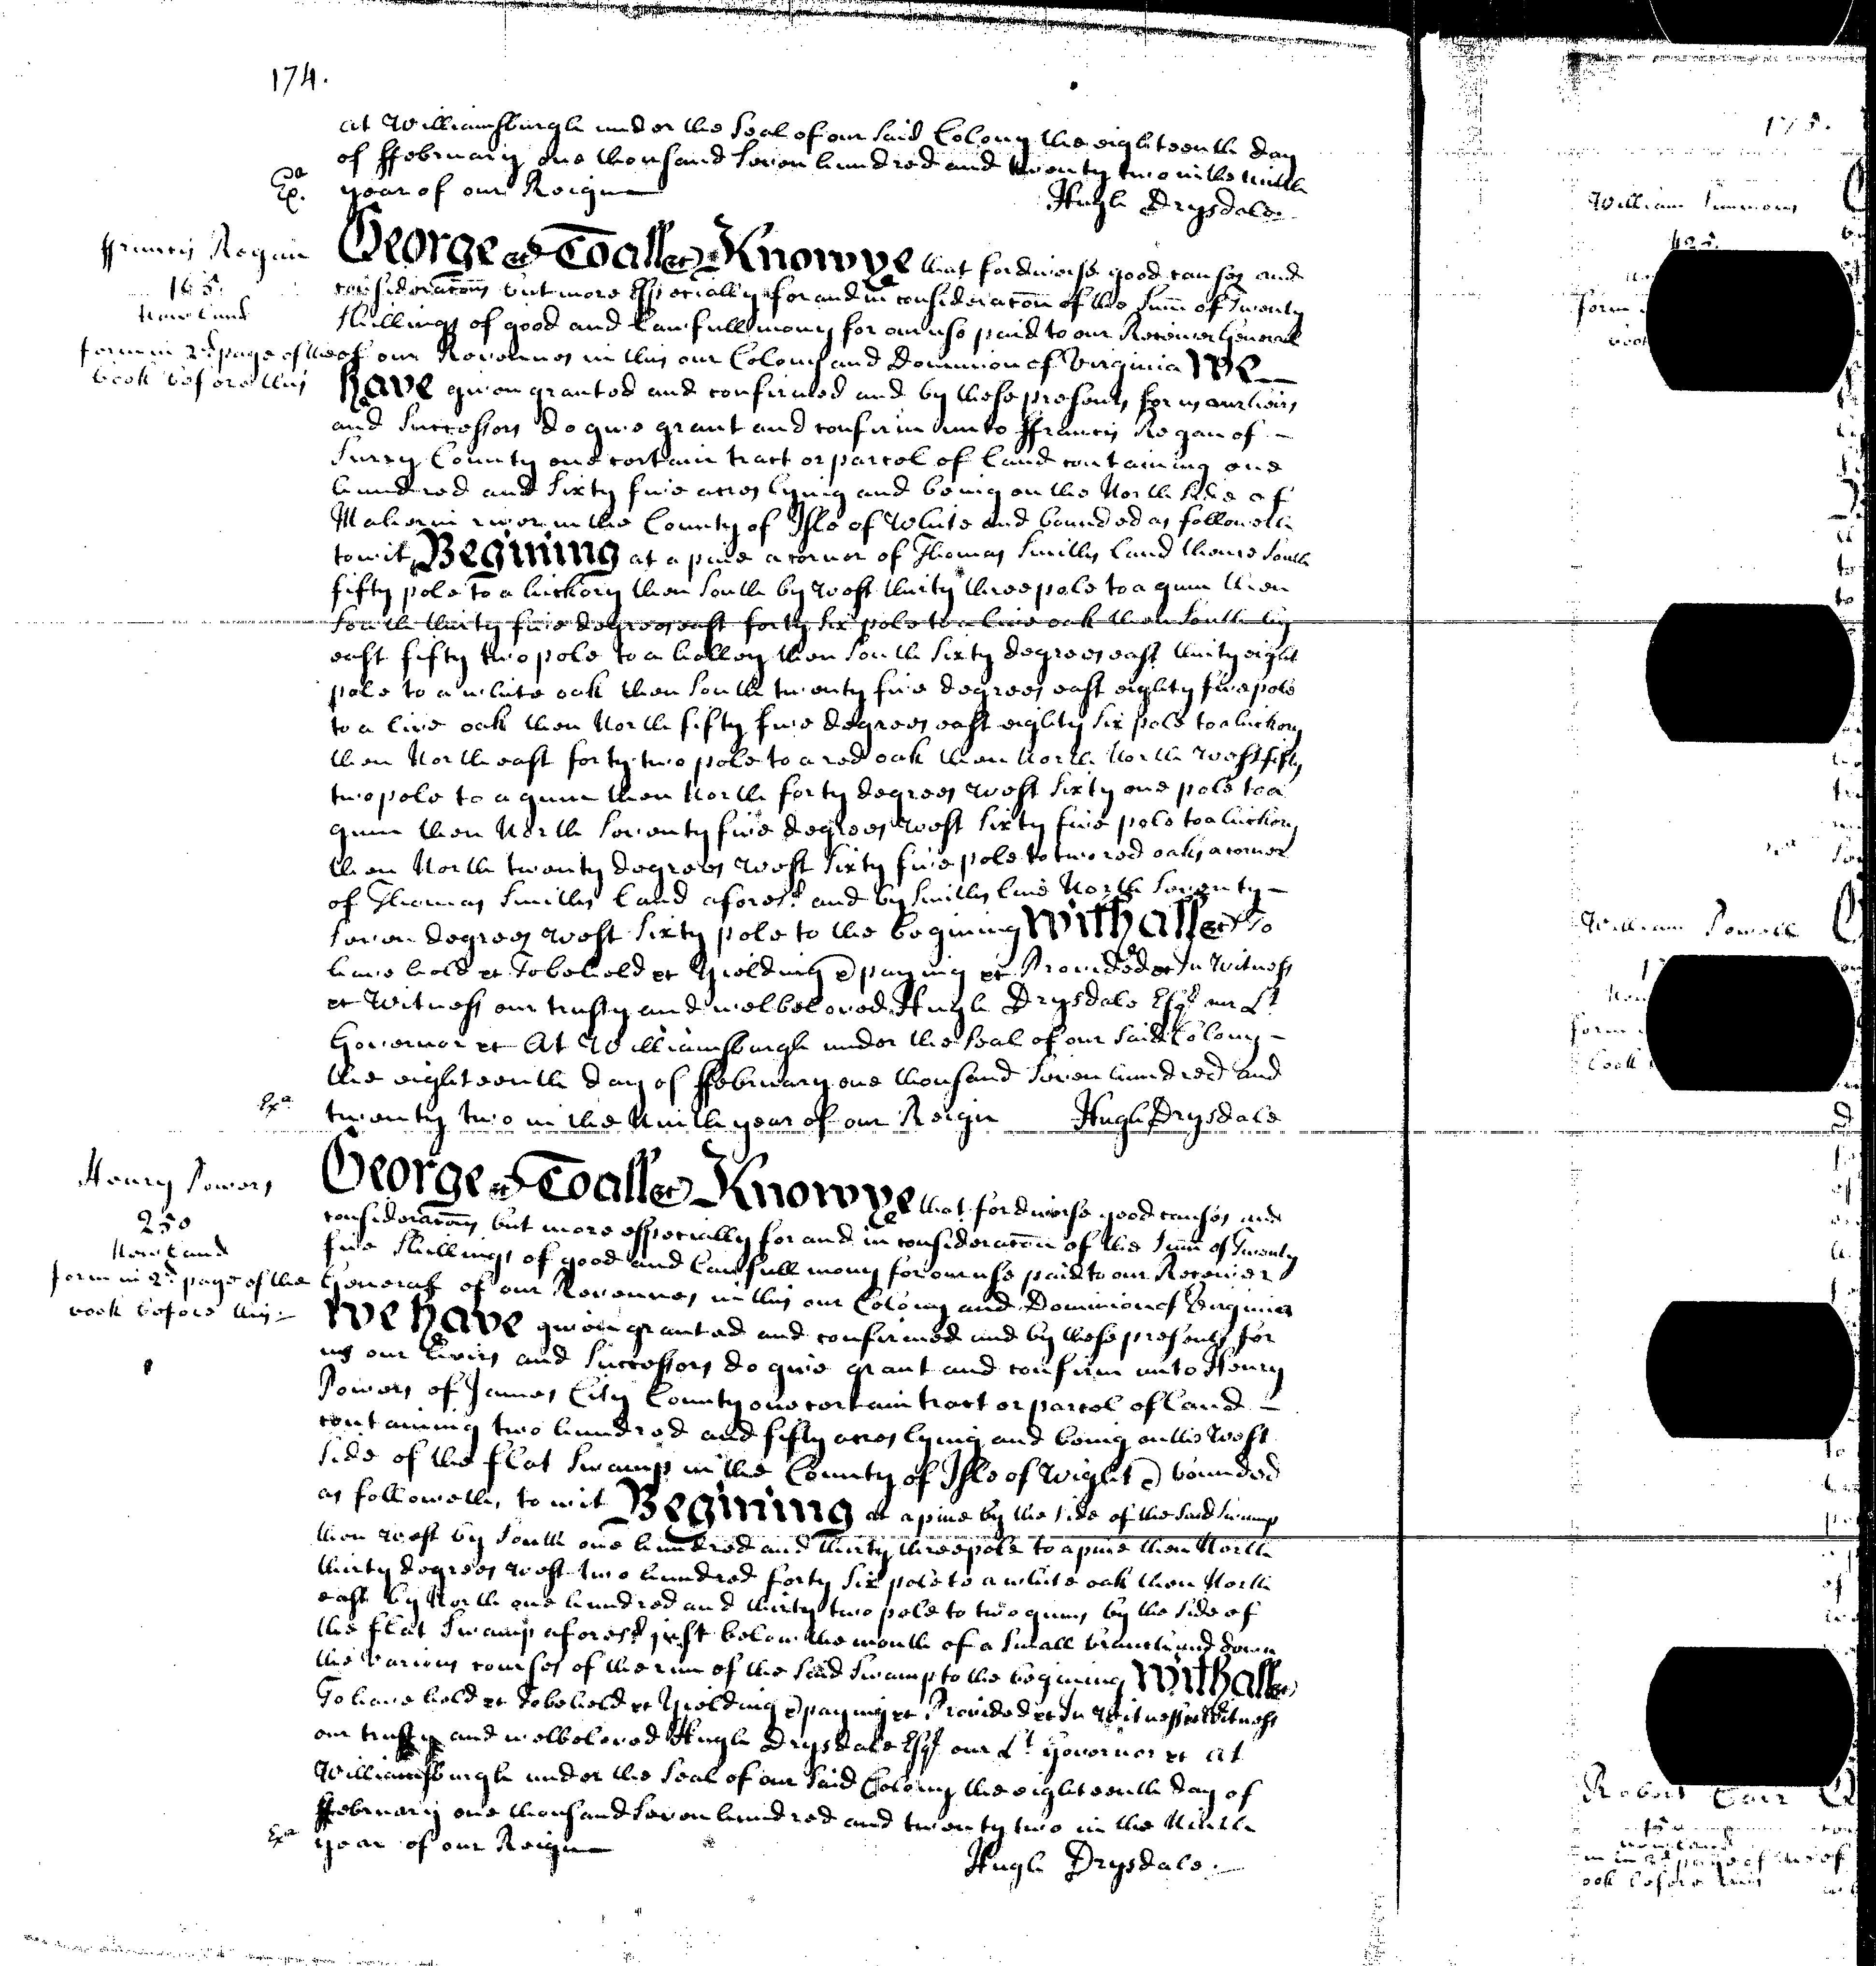 174.
at Williamsburgh under the Seal of our Said Colony the eighteenth day
of ffebruary one thousand Seven hundred and twenty two in the ninth
Exa. year of our Reign
Hugh Drysdale
ffrancis Regan
165.
New Land
form in 2d. page of the
book before this
George &c To all &c Know ye that for diverse good causes and
consideracons but more Especially for and in consideracon of the Sum of Twenty
Shillings of good and Lawfull mony for our use paid to our Receiver General
of our Revenues in this our Colony and Dominion of Virginia We
have given granted and confirmed and by these presents for us our heirs
and Successors do give grant and confirm unto ffrancis Regan of
Surry County one certain tract or parcel of land containing one
hundred and Sixty five acres lying and being on the North Side of
Maherin river in the County of Isle of White and bounded as followeth
to wit, Begining at a pine a corner of Thomas Smiths Land thence South
fifty pole to a hickory then South by West thirty three pole to a gum then
South thirty five degrees east forty Six pole to a live oak then South by
east fifty two pole to a holley then South Sixty degrees east thirty eight
pole to a white oak then South twenty five degrees east eighty five pole
to a live oak then North fifty five degrees east eighty Six pole to a hickory
then North east forty two pole to a red oak then North North West fifty
two pole to a gum then North forty degrees West Sixty one pole to a
gum then North Seventy five degrees West Sixty five pole to a hickory
then North twenty degrees West Sixty five pole to two red oaks a corner
of Thomas Smiths Land aforesd. and by Smiths line North Seventy
Seven degrees West Sixty pole to the begining With all &c To
have hold &c To be held &c Yielding & paying &c Provided &c In Witness
&c Witness our trusty and welbeloved Hugh Drysdale Esqr. our Lt.
Governor &c At Williamsburgh under the Seal of our Said Colony
the eighteenth day of ffebruary one thousand Seven hundred and
Exa. twenty two in the Ninth year of our Reign Hugh Drysdale
Henry Powers
250
New Land
form in 2d. page of the
book before this
George &c To all &c Know ye that for diverse good causes and
consideracons but more especially for and in consideracon of the Sum of Twenty
five Shillings of good and Lawfull mony for our use paid to our Receiver
General of our Revenues in this our Colony and Dominion of Virginia
We have given granted and confirmed and by these presents for
us our heirs and Successors do give grant and confirm unto Henry
Powers of James City County one certain tract or parcel of land
containing two hundred and fifty acres lying and being on the West
Side of the flat Swamp in the County of Isle of Wight & bounded
as followeth, to wit Begining at a pine by the side of the Said Swamp
then West by South one hundred and thirty three pole to a pine then North
thirty degrees West two hundred forty Six pole to a white oak then North
east by North one hundred and thirty two pole to two gums by the side of
the flat Swamp aforesd. just below the mouth of a Small branch and down
the various courses of the run of the Said Swamp to the begining With all &c
To have hold &c To be held &c Yielding & paying &c Provided &c In Witness &c Witness
our trusty and welbeloved Hugh Drysdale Esqr. our Lt. Governor &c At
Williamsburgh under the Seal of our Said Colony the eighteenth day of
ffebruary one thousand Seven hundred and twenty two in the Ninth
Exa. year of our Reign
Hugh Drysdale
175.
William Simmons
425.
form
William Powell
form
book
Robert Carr
page of the
book before this